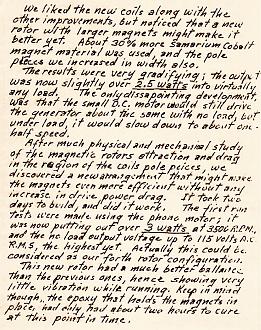 We liked the new coils along with the
other improvements, but noticed that a new
rotor with larger magnets might make it
better yet. About 30% more samarium cobolt
magnet material was used, and the pole
pieces we increased in width also.
The results were very gradifying; the output
was now slightly over 2.5 watts into virtually
any load. The only disappointing development
was that the small D.C. motor would still drive
the generator about the same with no load, but
under load, it would slow down to about one-
half speed.
After much physical and mechanical study
of the magnetic rotors attraction and drag
in the region of the coil pole peices, we
discovered a new arrangement that might make
the magnets even more efficient without any
increase in drive power drag. It took two
days to build, and did it work. The first run
tests were made using the phone motor; it
was now putting out over 3 watts at 3500 R.P.M.,
and the no load output voltage up to 115 volts A.C.
R.M.S, the highest yet. Actually this could be
considered as our forth rotor configuration.
This new rotor had a much better ballance
than the previous ones, hence showing very
little vibration while running. Keep in mind
though, the epoxy that holds the magnets in
place, had only had about two hours to cure
at this point in time.